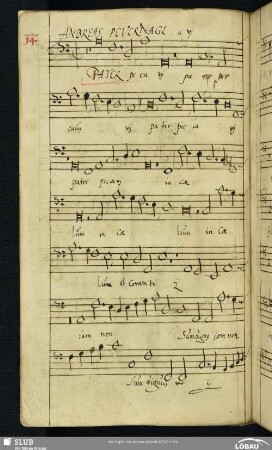 ANDREAS PEVERNAGE a vj
14
PATER peccavi pater pec
cavi vj pater pecca vj
pater peccavi in cæ
lum in cæ lum in cæ
lum et coram te 2
iam non Sum dignus iam non
Sum dignus ij
SLUB
LÖBAU